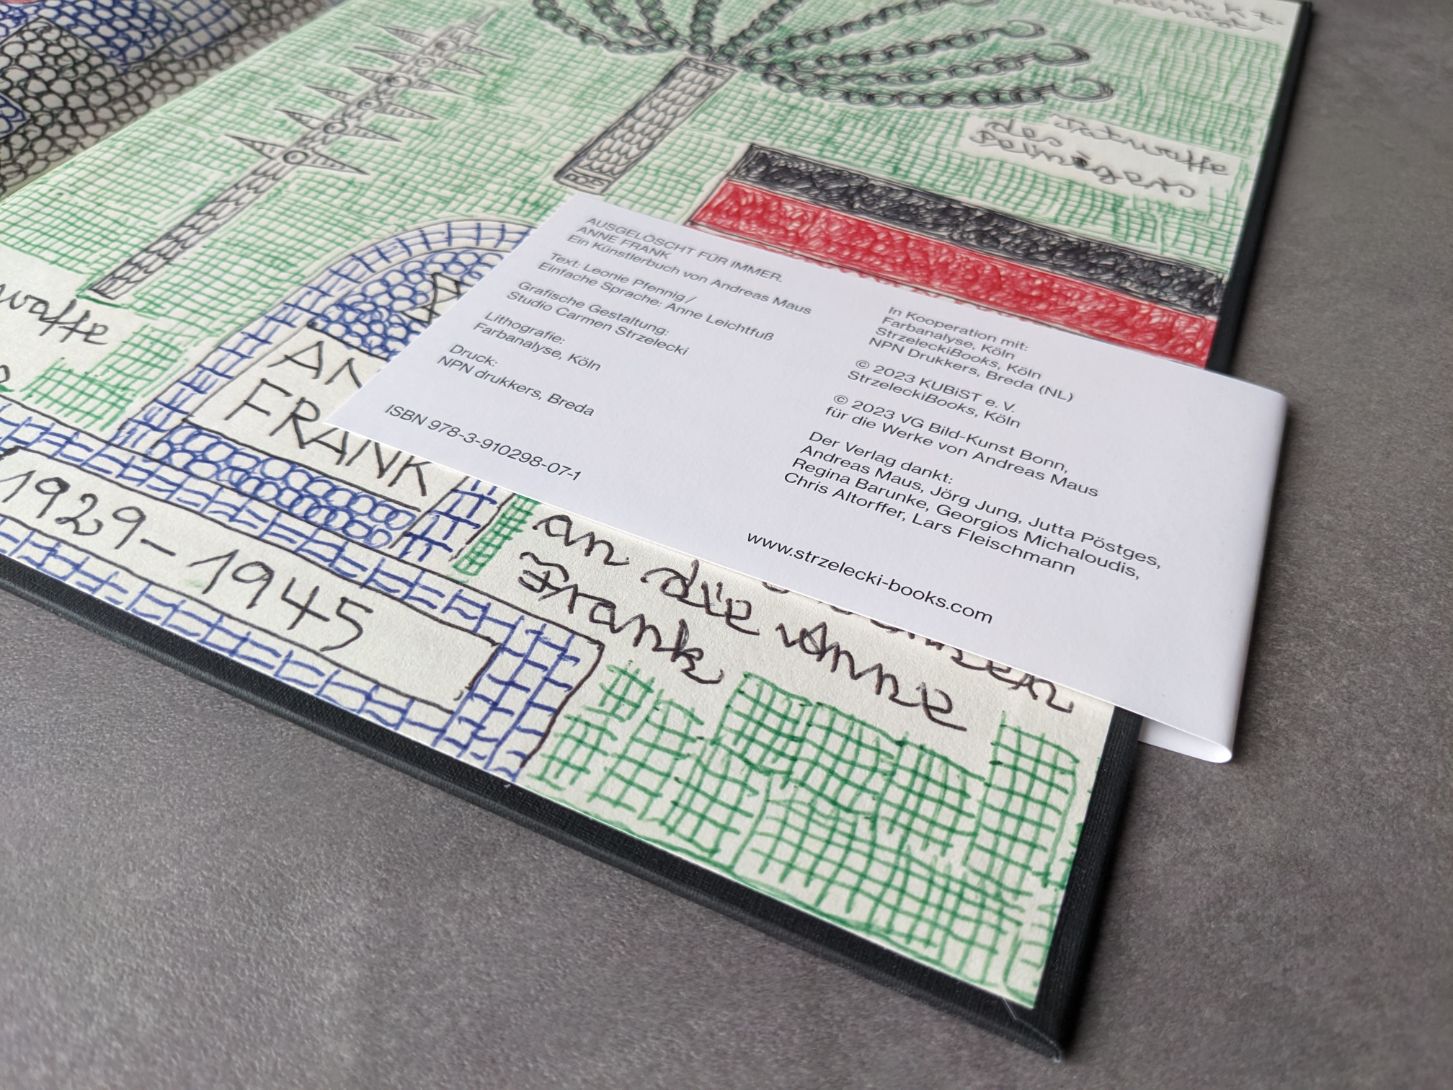 Tatwaffe
des
AUSGELÖSCHT FÜR IMMER.
ANNE FRANK
Ein Künstlerbuch von Andreas Maus
Text: Leonie Pfennig /
Einfache Sprache: Anne Leichtfuß
Grafische Gestaltung:
Studio Carmen Strzelecki
Lithografie:
Farbanalyse, Köln
Druck:
NPN drukkers, Breda
ISBN 978-3-910298-07-1
In Kooperation mit:
Farbanalyse, Köln
StrzeleckiBooks, Köln
NPN Drukkers, Breda (NL)
© 2023 KUBiST e. V.
StrzeleckiBooks, Köln
© 2023 VG Bild-Kunst Bonn,
für die Werke von Andreas Maus
Der Verlag dankt:
Andreas Maus, Jörg Jung, Jutta Pöstges,
Regina Barunke, Georgios Michaloudis,
Chris Altorffer, Lars Fleischmann
www.strzelecki-books.com
waffe
AN
FRANK
1929-1945
an die Anne
Frank